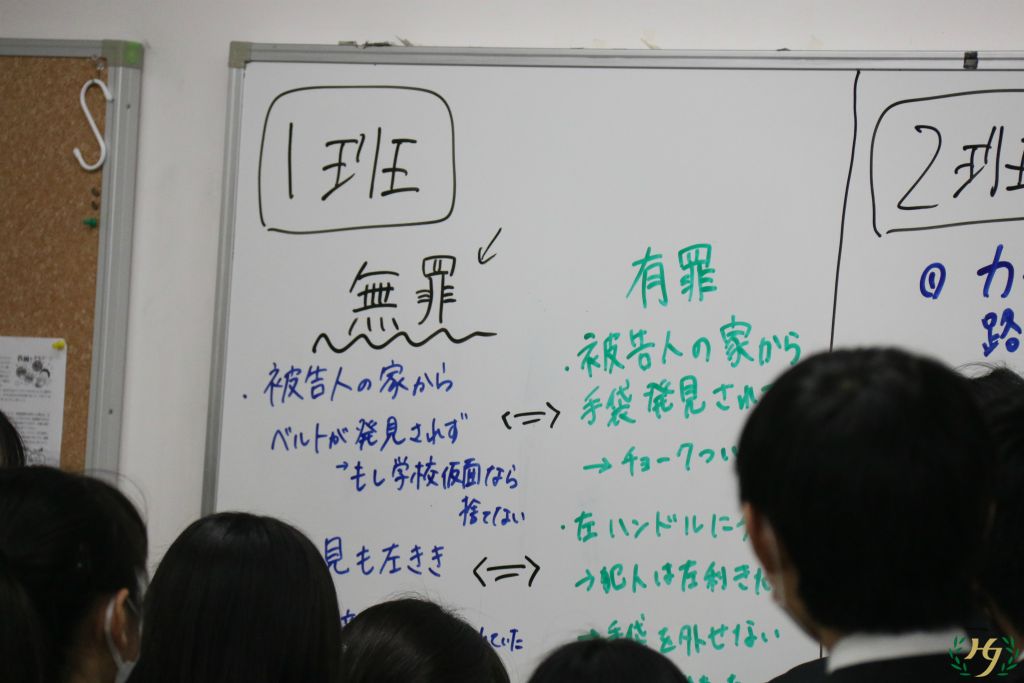 1班
無罪
・被告人の家から
ベルトが発見されず
→もし学校仮面なら
捨てない
見も左きき
れていた
<=>
<=>
有罪
・被告人の家から
手袋発見され
→チョークつい
・左ハンドルに
→犯人は左利き
→手袋を外せない
2班
①カ
路
HJ